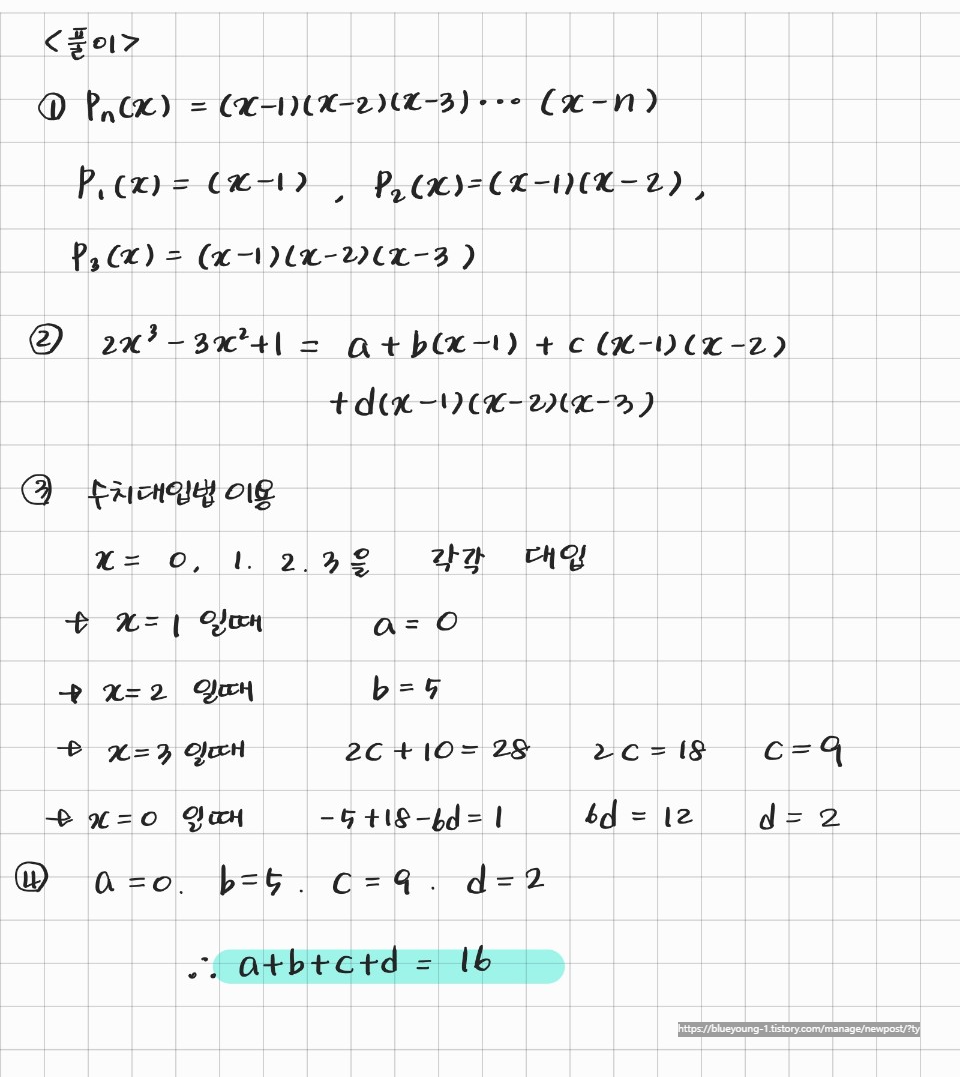 <풀이>
① Pₙ(x) = (x-1)(x-2)(x-3)··· (x-n)
P₁(x) = (x-1) , P₂(x)=(x-1)(x-2),
P₃(x) = (x-1)(x-2)(x-3)
② 2x³-3x²+1 = a+b(x-1)+c(x-1)(x-2)
+d(x-1)(x-2)(x-3)
③ 수치대입법 이용
x = 0, 1. 2. 3을 각각 대입
→ x=1 일때 a=0
→ x=2 일때 b=5
→ x=3 일때 2c+10=28 2c=18 c=9
→ x=0 일때 -5+18-6d=1 6d=12 d=2
④ a=0. b=5. c=9. d=2
∴ a+b+c+d = 16
https://blueyoung-1.tistory.com/manage/newpost/?ty